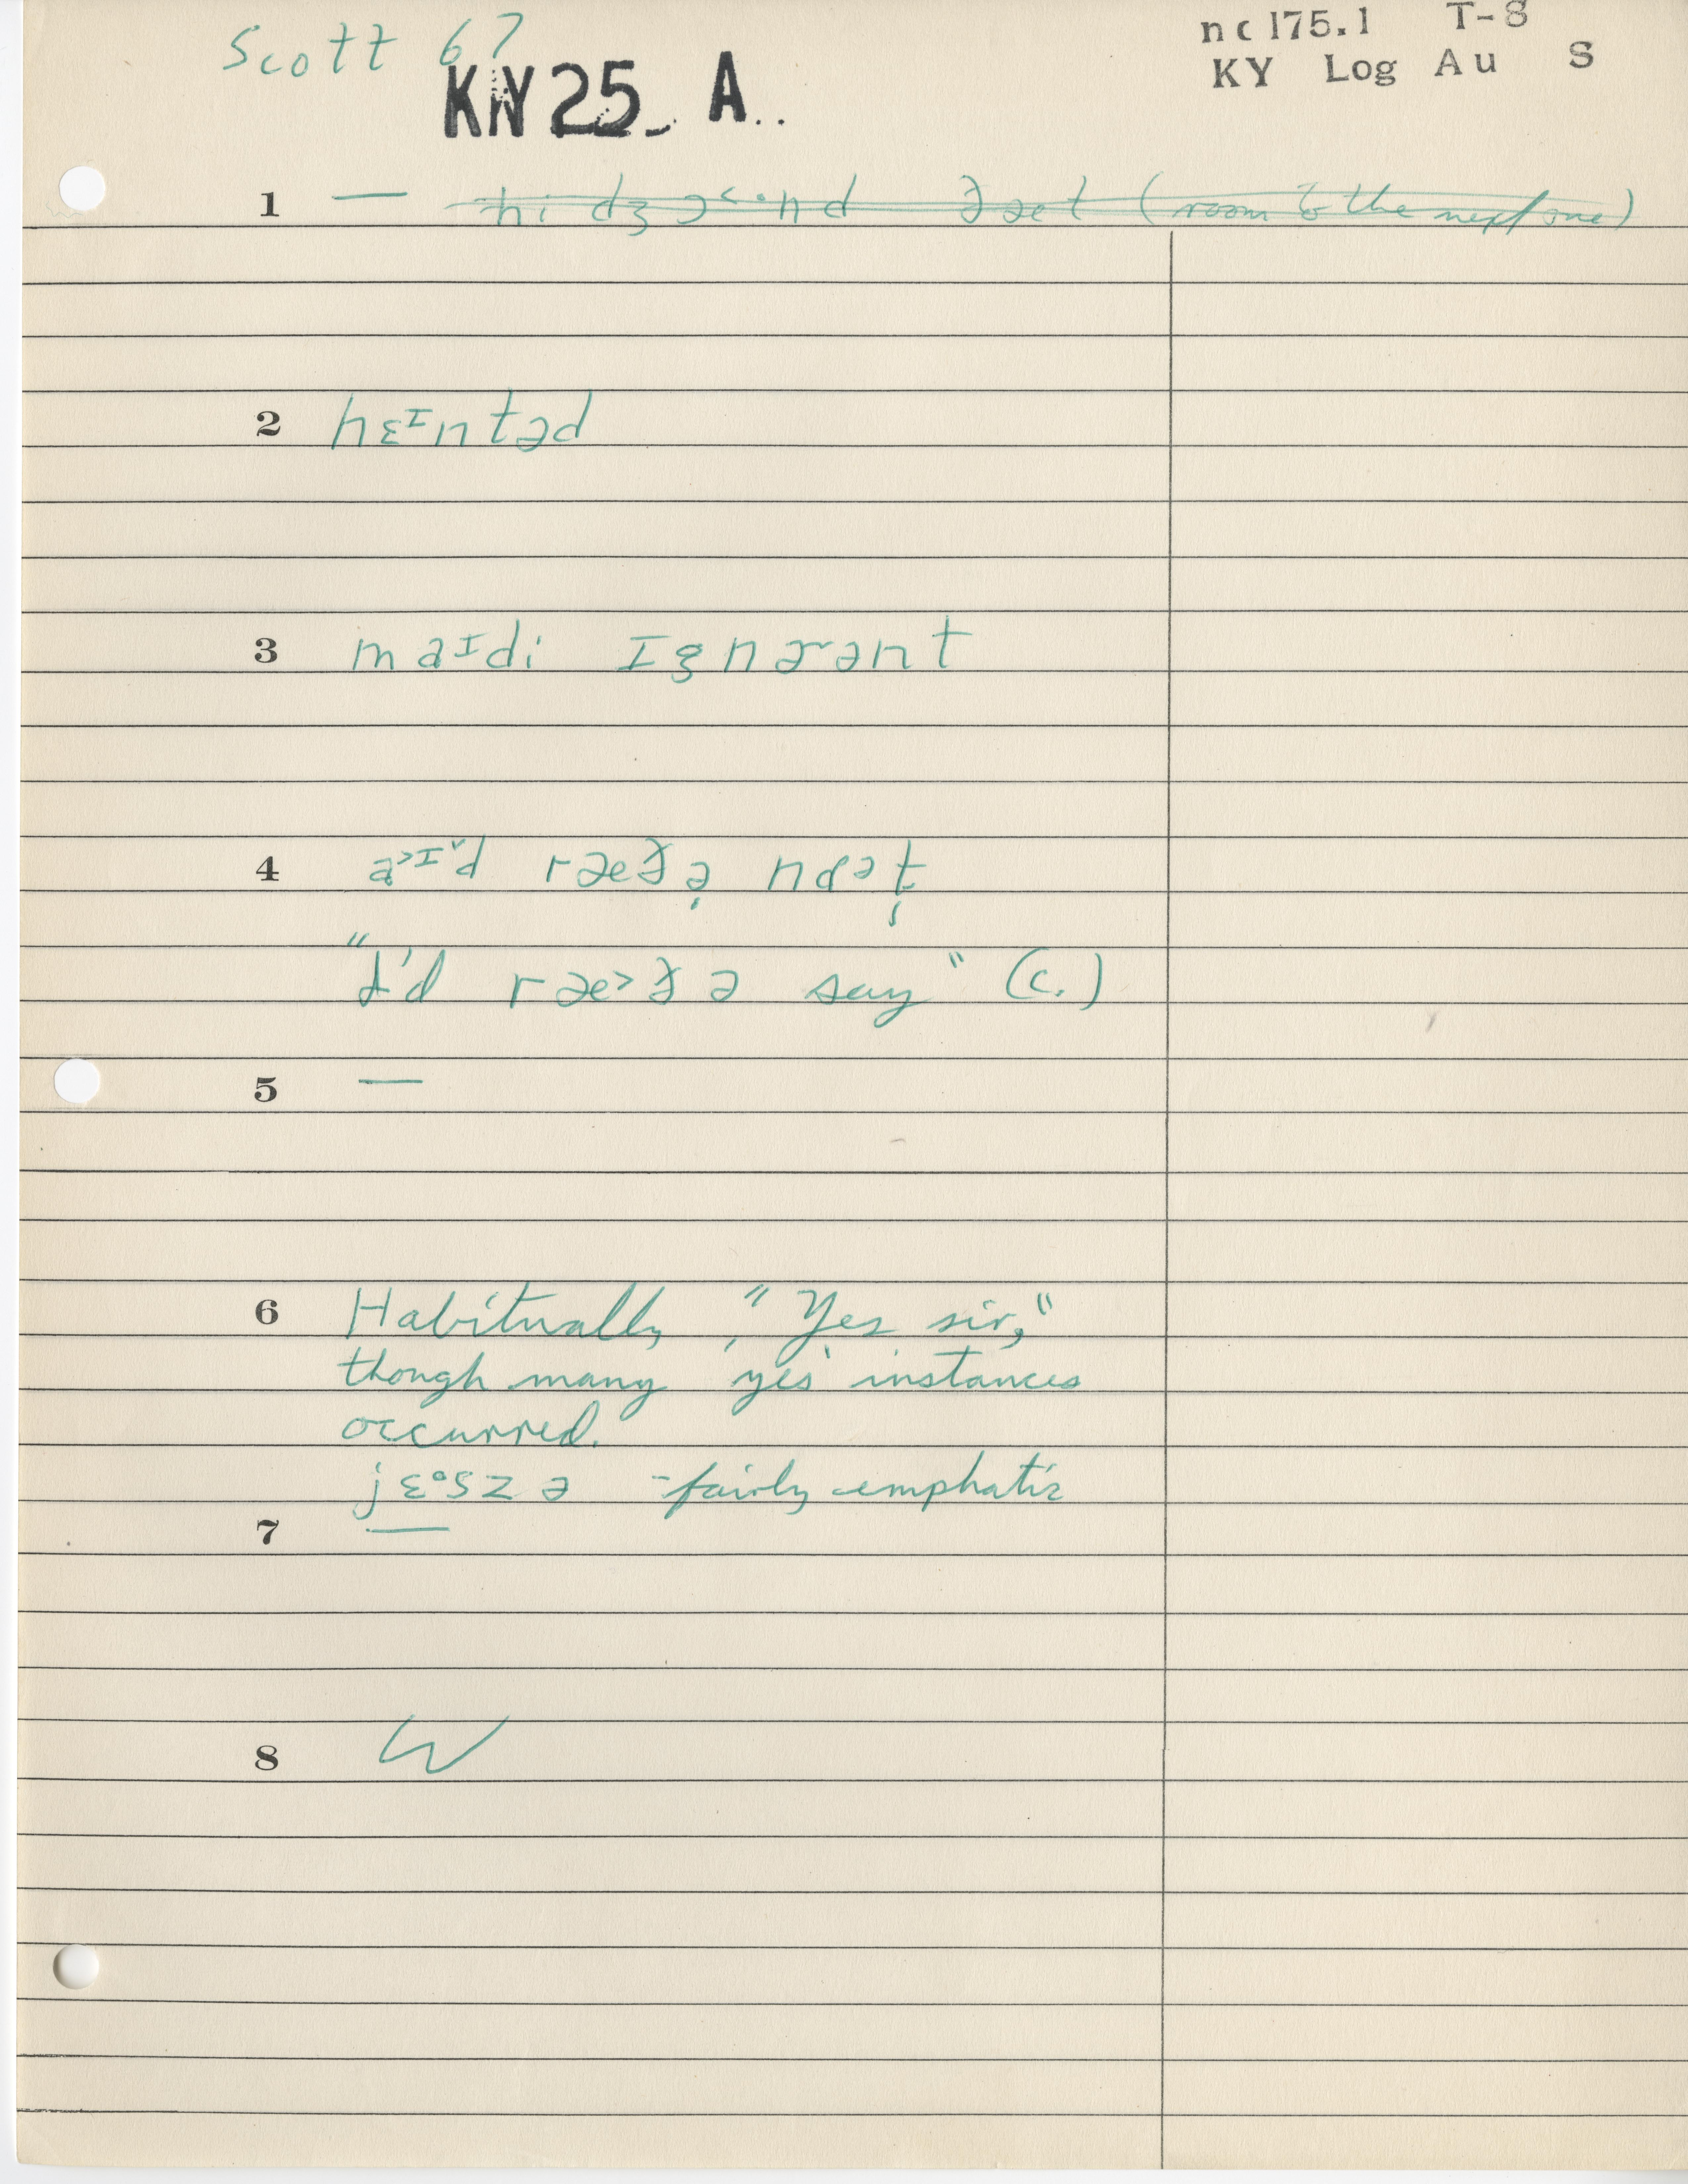 Scott 67
nc 175.1 T-8
KY Log Au S
KY 25 A..
1 — (room to the next one)
2 hɛᶦntəd
3 maᶦdi ɪgnɚənt
4 ræðə̣
"I'd ræ˃ðə say" (c.)
5 —
6 Habitually, "Yes sir,"
though many 'yes' instances
occurred.
jɛᵊszə - fairly emphatic
7 —
8 W